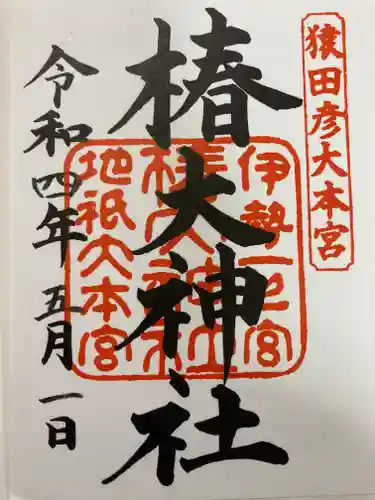 猿田彦大本宮
椿大神社
伊勢一之宮
椿大神社
地祇大本宮
令和四年 五月 一日